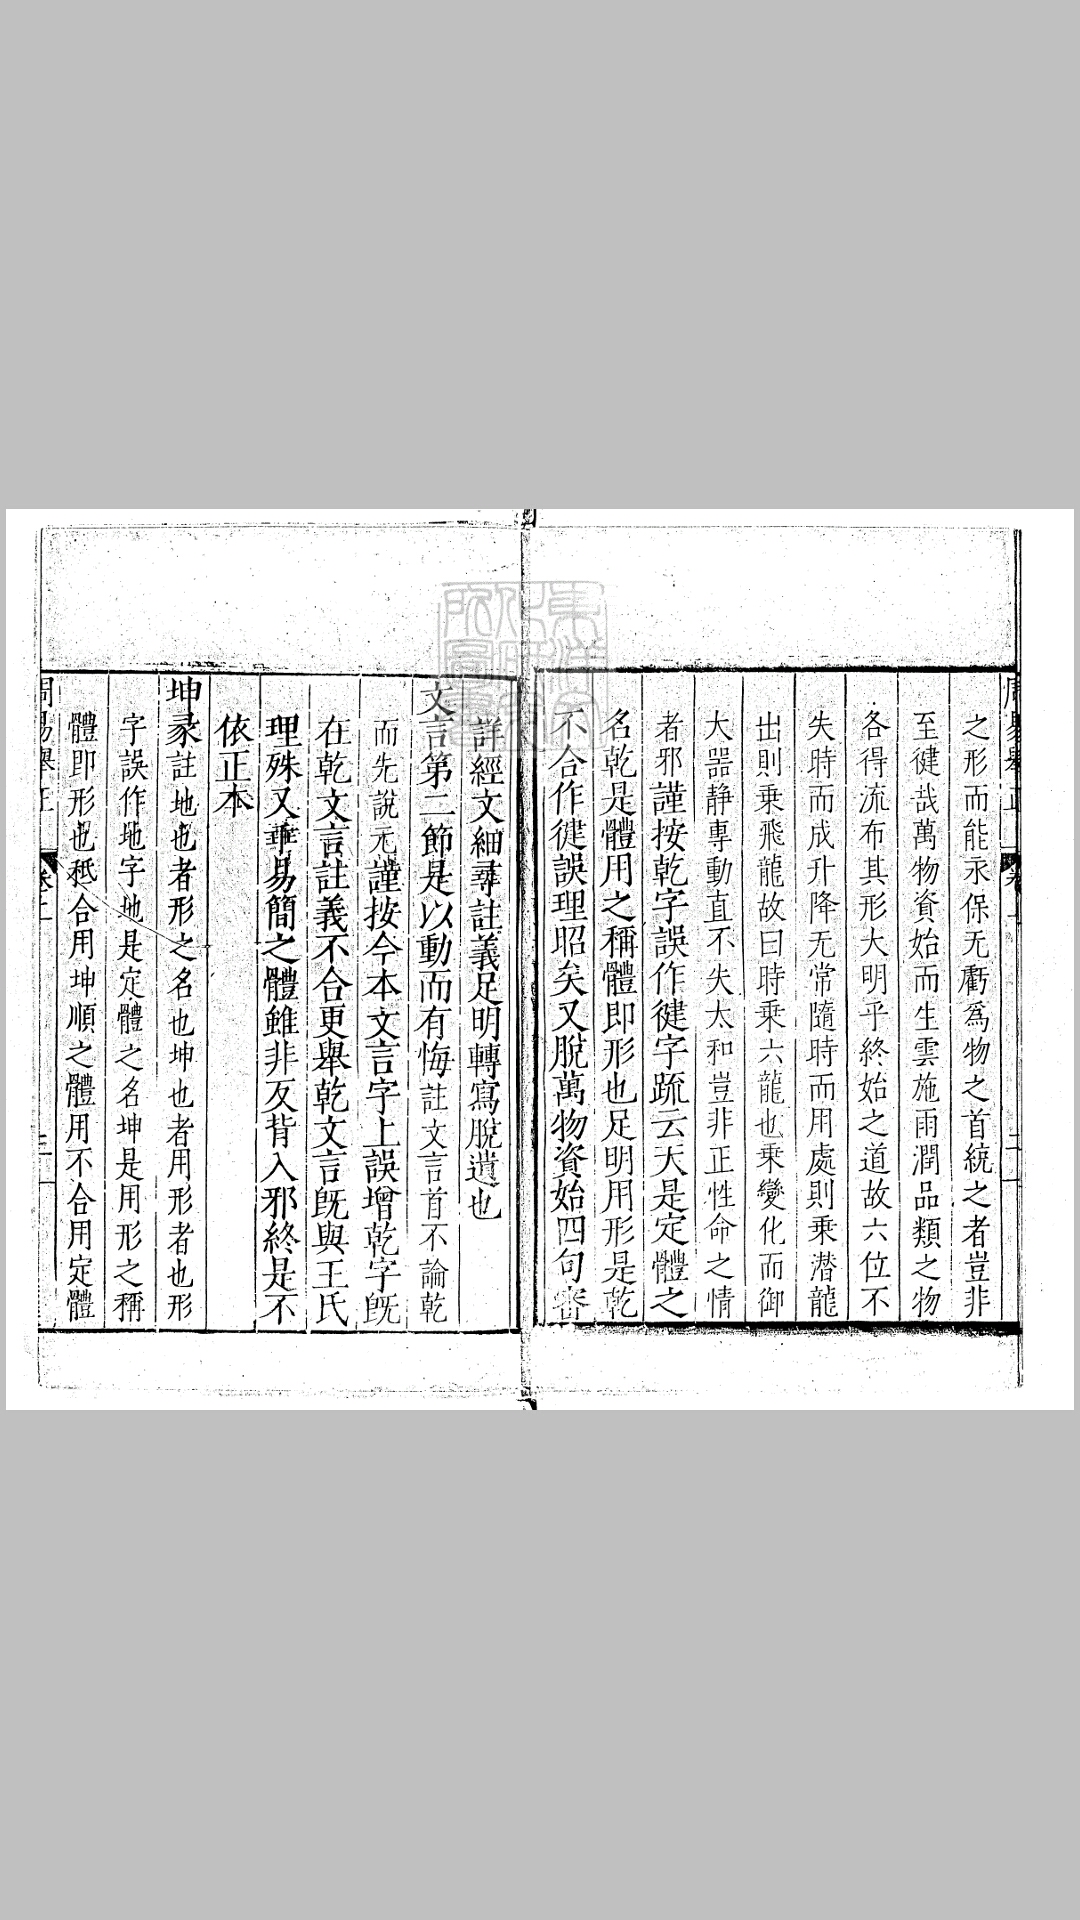 之形而能永保无虧爲物之首統之者豈非
至健哉萬物資始而生雲施雨潤品類之物
各得流布其形大明乎終始之道故六位不
失時而成升降无常隨時而用處則乘潛龍
出則乘飛龍故曰時乘六龍也乘變化而御
大器靜專動直不失太和豈非正性命之情
者邪謹按乾字誤作健字疏云天是定體之
名乾是體用之稱體即形也足明用形是乾
不合作健誤理昭矣又脫萬物資始四句審
詳經文細尋註義足明轉寫脫遺也
文言第二節是以動而有悔註文言首不論乾
而先說元謹按今本文言字上誤增乾字旣
在乾文言註義不合更舉乾文言旣與王氏
理殊又乖易簡之體雖非反背入邪終是不
依正本
坤彖註地也者形之名也坤也者用形者也形
字誤作地字地是定體之名坤是用形之稱
體即形也秖合用坤順之體用不合用定體
周易舉正 卷上 三